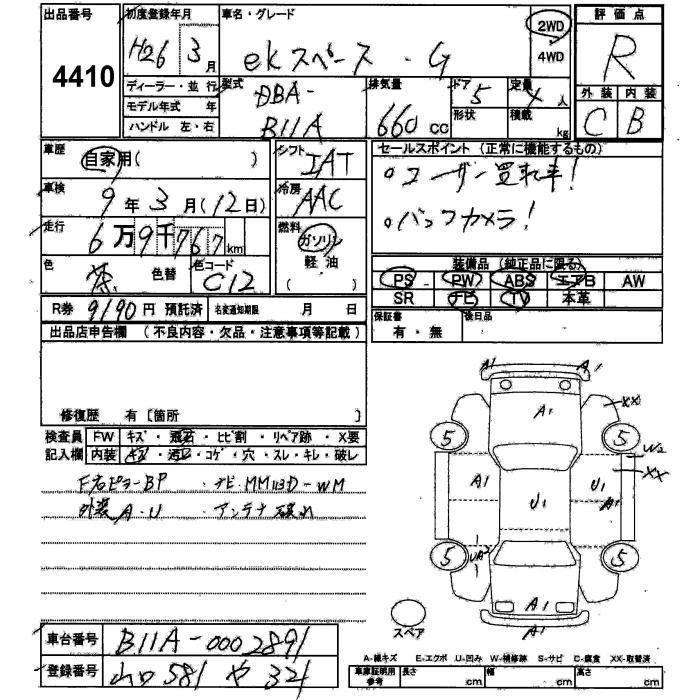 出品番号
4410
初度登録年月
H26 3月
車名・グレード
ekスペース・G
2WD
4WD
評価点
R
ディーラー・並行
モデル年式 年
ハンドル 左・右
型式
DBA-
B11A
排気量
660 cc
ドア
5
形状
定員
4人
積載
kg
外装 内装
C B
車歴
自家用( )
シフト
IAT
セールスポイント (正常に機能するもの)
○ユーザー買取車!
○バックカメラ!
車検
9年3月(12日)
冷房
AAC
走行
6万9千767km
燃料
ガソリン
軽油
( )
色
茶
色替
色コード
C12
装備品 (純正品に限る)
PS PW ABS エアB AW
SR ナビ TV 本革
R券 9190円 預託済
名変通知期限 月 日
保証書
有・無
後日品
出品店申告欄 (不良内容・欠品・注意事項等記載)
修復歴 有〔箇所 〕
検査員
記入欄
FW キズ・飛石・ヒビ割・リペア跡・X要
内装 キズ・汚レ・コゲ・穴・スレ・キレ・破レ
F右ピラーBP ナビMM113D-WM
外装A・U アンテナ破れ
A1 A1
A1
XX
5 5
W2
XX
A1 U1 A1
A1
UA2
5 5
A1
A1
スペア
車台番号 B11A-0002891
登録番号 山口 581 や 321
A-線キズ E-エクボ U-凹み W-補修跡 S-サビ C-腐食 XX-取替済
車庫証明用
参考
長さ cm 幅 cm 高さ cm